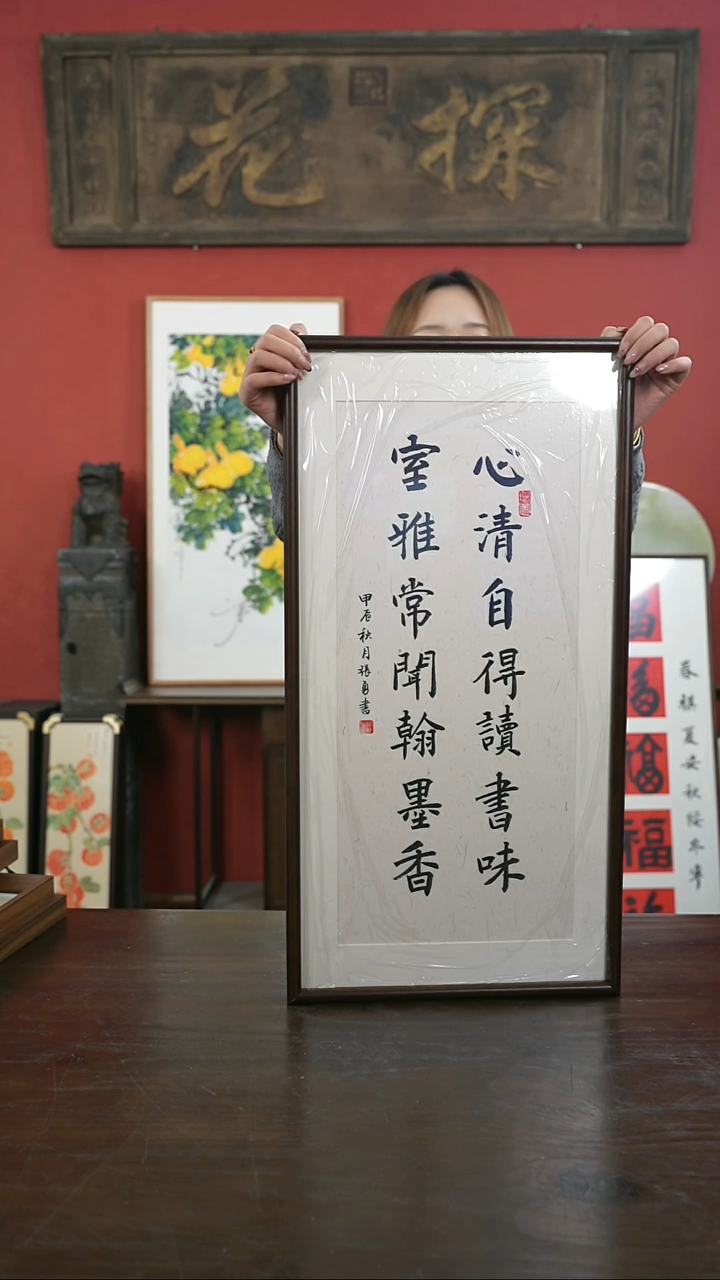 探花
心清自得讀書味
室雅常聞翰墨香
甲辰秋月張勇書
春祺夏安秋綏冬寧
福